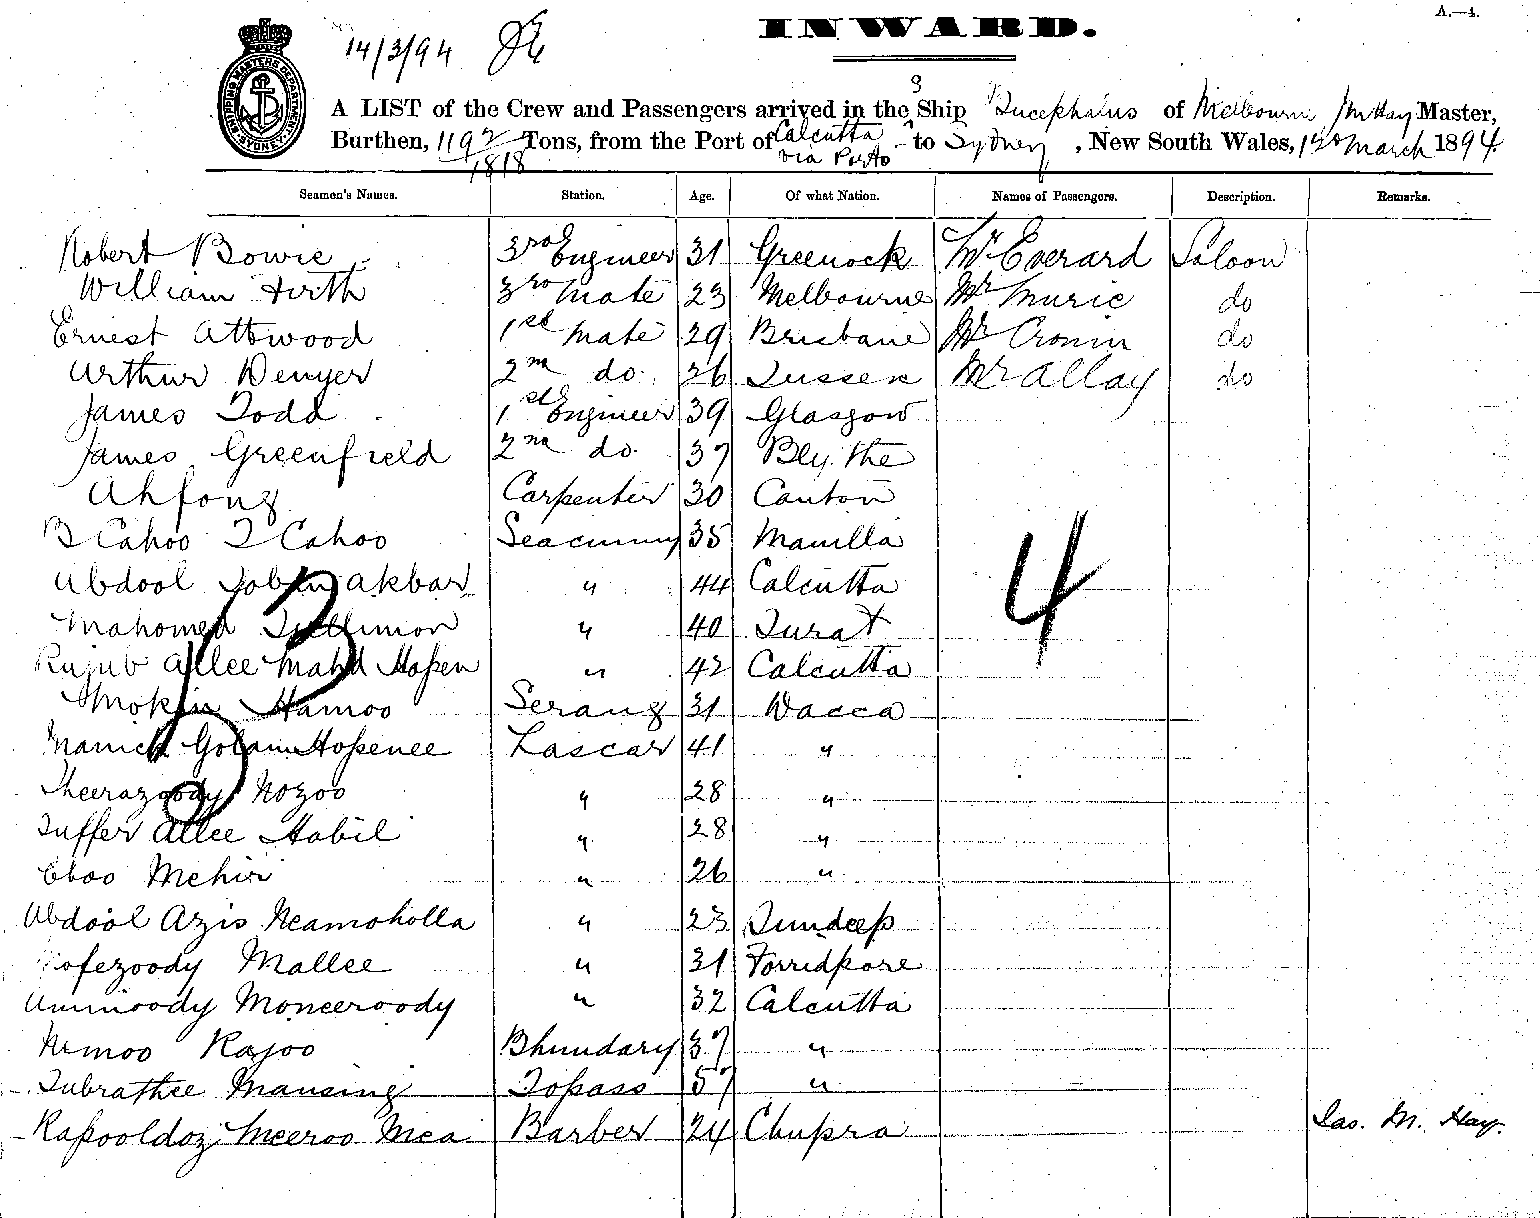 A.—4.
INWARD.
14/3/94
SHIPPING MASTERS DEPARTMENT SYDNEY
A LIST of the Crew and Passengers arrived in the SShip Bucephalus of Melbourne Jas M Hay Master,
Burthen, 1192/1818 Tons, from the Port of Calcutta via Ports to Sydney, New South Wales, 13th March 1894
Seamen's Names. Station. Age. Of what Nation. Names of Passengers. Description. Remarks.
Robert Bowie 3rd Engineer 31 Greenock Mr Everard Saloon
William Firth 3rd Mate 23 Melbourne Mr Murie do
Ernest Attwood 1st Mate 29 Brisbane Mr Cronin do
Arthur Denyer 2nd do 26 Sussex Mr Allay do
James Todd 1st Engineer 39 Glasgow
James Greenfield 2nd do 37 Blythe
Ahfong Carpenter 30 Canton
B Cahoo T Cahoo Seacunny 35 Manilla
Abdool Akbar " 44 Calcutta
Mahomed Sullimon " 40 Surat
Rujub Allee Mahd Hossen " 42 Calcutta
Mokin Hamoo Serang 31 Dacca
Manick Golam Hossenee Lascar 41 "
Sheerazoody Nozoo " 28 "
Tuffer Allee Habil " 28 "
Eboo Mehir " 26 "
Abdool Azis Neamoholla " 23 Sundeep
Mallee " 31 Forridpore
Amimoody Monceroody " 32 Calcutta
Nemoo Rajoo Bhundary 37 "
Subrathee Mansing Topass 57 "
Rasooldoz Meeroo Mea Barber 24 Chupra Jas. M. Hay.
4
13